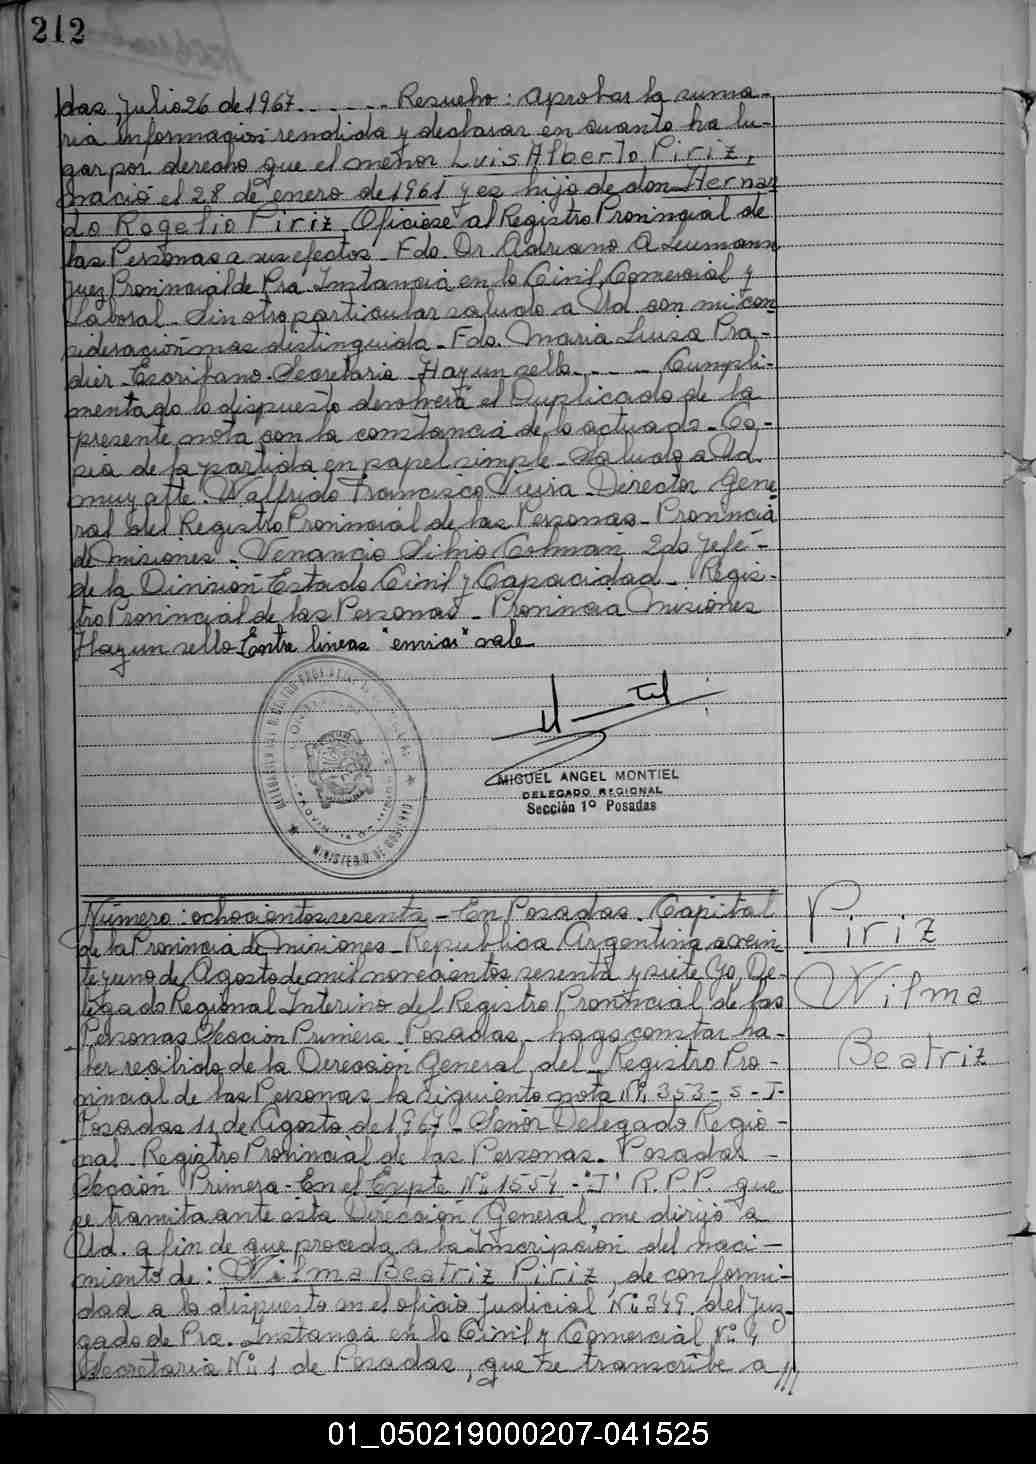 212
das, Julio 26 de 1967 - - - - - - Resuelvo: aprobar la suma-
ria informacion rendida y declarar en cuanto ha lu-
gar por derecho que el menor Luis Alberto Piriz,
nació el 28 de enero de 1961 y es hijo de don Hernan
do Rogelio Piriz. Oficiese al Registro Provincial de
las Personas a sus efectos - Fdo. Dr. Adriano A. Leumann
Juez Provincial de Pra Instancia en lo Civil, Comercial y
Laboral - Sin otro particular saludo a Ud. con mi con
sideración mas distinguida - Fdo. Maria Luisa Pra-
dier - Escribano - Secretaria - Hay un sello - - - - Cumpli-
mentado lo dispuesto devolverá el Duplicado de la
presente nota con la constancia de lo actuado - Co-
pia de la partida en papel simple - Saludo a Ud.
muy atte. Walfrido Francisco Vieira - Director Gene
ral del Registro Provincial de las Personas - Provincia
de Misiones - Venancio Silvio Colman 2do Jefe -
de la Division Estado Civil y Capacidad - Regis-
tro Provincial de las Personas - Provincia Misiones
Hay un sello Entre lineas "enviar" vale
MINISTERIO DE GOBIERNO
MIGUEL ANGEL MONTIEL
DELEGADO REGIONAL
Sección 1º Posadas
Número: ochocientos sesenta - En Posadas, Capital
de la Provincia de Misiones - Republica Argentina a vein
te y uno de Agosto de mil novecientos sesenta y siete Yo, De-
legado Regional Interino del Registro Provincial de las
Personas Seccion Primera - Posadas - hago constar ha-
ber recibido de la Direccion General del Registro Pro-
vincial de las Personas la siguiente nota Nº 353 - S - J-
Posadas 11 de Agosto de 1967 - Señor Delegado Regio-
nal - Registro Provincial de las Personas - Posadas -
Sección Primera - En el Expte Nº 1554 - "J" R.P.P. que
se tramita ante esta Direccion General, me dirijo a
Ud. a fin de que proceda a la Inscripcion del naci-
miento de: Wilma Beatriz Piriz, de conformi-
dad a lo dispuesto en el oficio Judicial Nº 349 del Juz-
gado de Pra. Instancia en lo Civil y Comercial Nº 4
Secretaria Nº 1 de Posadas, que se transcribe a ///
Piriz
Wilma
Beatriz
01_050219000207-041525